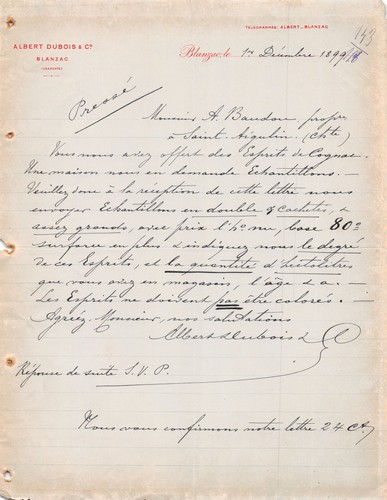 TÉLÉGRAMMES: ALBERT - BLANZAC
143
ALBERT DUBOIS & Cie
BLANZAC
(CHARENTE)
Blanzac, le 1er Décembre 1899
Pressé
Monsieur A. Baudou, propre
à Saint-Aigulin (Chte)
Vous nous aviez offert des Esprits de Cognac.
Une maison nous en demande Echantillons. -
Veuillez donc à la réception de cette lettre nous
envoyer Echantillons en double & cachetés, &
assez grands, avec prix l'ho nu, base 80°
surforce en plus & indiquez nous le degré
de ces Esprits, et la quantité d'hectolitres
que vous avez en magasin, l'âge &a. -
Les Esprits ne doivent pas être colorés. -
Agréez, Monsieur, nos salutations
Albert Dubois & Co
Réponse de suite S.V.P.
Nous vous confirmons notre lettre 24 Ct